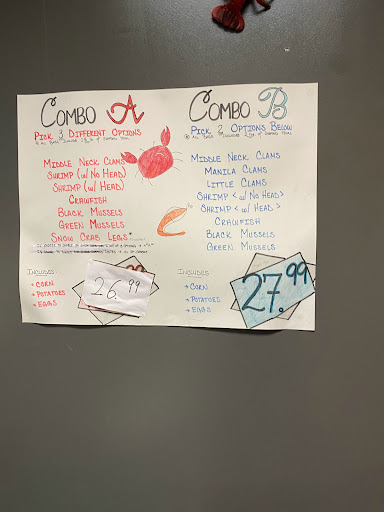 Combo A
Pick 3 Different Options
Middle Neck Clams
Shrimp (w/ No Head)
Shrimp (w/ Head)
Crawfish
Black Mussels
Green Mussels
Snow Crab Legs*
Includes
→ Corn
→ Potatoes
→ Eggs
26.99
Combo B
Pick 2 Options Below
Middle Neck Clams
Manila Clams
Little Clams
Shrimp < w/ No Head>
Shrimp < w/ Head >
Crawfish
Black Mussels
Green Mussels
Includes
→ Corn
→ Potatoes
→ Eggs
27.99